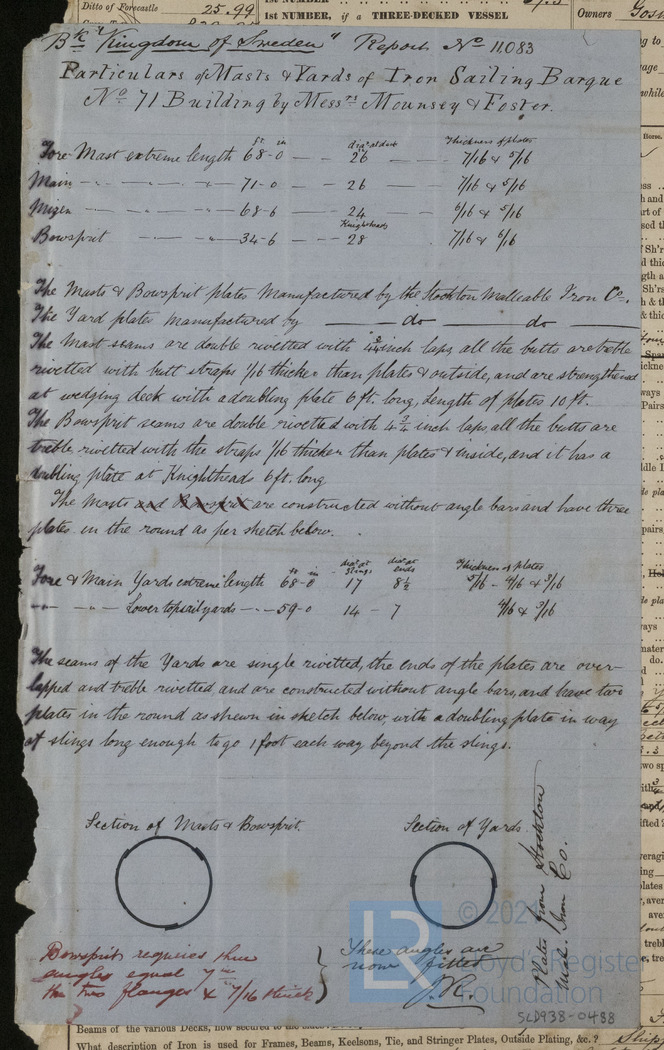 Ditto of Forecastle 25.99
1st NUMBER, if a THREE-DECKED VESSEL
Owners
Bk "Kingdom of Sweden" Report No 11,083
Particulars of Masts & Yards of Iron Sailing Barque
No 71 Building by Messrs Mounsey & Foster.
ft in dia at deck Thickness of plates
Fore Mast extreme length 68-0 — — 26 — — 7/16 & 5/16
Main — — „ — 71-0 — 26 7/16 & 5/16
Mizen — — „ — 68-6 — 24 6/16 & 5/16
Knightheads
Bowsprit — — „ — 34-6 — 28 7/16 & 6/16
The Masts & Bowsprit plates Manufactured by the Stockton Malleable Iron Co.
The Yard plates manufactured by —— do —— do ——
The Mast seams are double rivetted with inch laps, all the butts are treble
rivetted with butt straps 1/16 thicker than plates & outside, and are strengthened
at wedging deck with a doubling plate 6 ft. long, length of plates 10 ft.
The Bowsprit seams are double rivetted with 4 3/4 inch laps, all the butts are
treble rivetted with the straps 1/16 thicker than plates & inside, and it has a
doubling plate at Knightheads 6 ft. long
The Masts and Bowsprit are constructed without angle bars and have three
plates in the round as per sketch below.
ft in dia at slings dia at ends Thickness of plates
Fore & Main Yards extreme length 68-0 17 8½ 5/16 - 4/16 & 3/16
„ — „ — Lower topsail yards — „ — 59-0 14 - 7 4/16 & 3/16
The seams of the Yards are single rivetted, the ends of the plates are over-
lapped and treble rivetted and are constructed without angle bars, and have two
plates in the round as shewn in sketch below, with a doubling plate in way
of slings long enough to go 1 foot each way beyond the slings.
Section of Masts & Bowsprit.
Section of Yards.
Plates from Stockton
Mal. Iron Co.
Bowsprit requires three
angles equal in
the two flanges & 7/16 thick
These angles are
now fitted
J.K.
LR
© 202
Lloyd's Register
Foundation
SLD938-0488
Beams of the various Decks, how secured to the sides?
What description of Iron is used for Frames, Beams, Keelsons, Tie, and Stringer Plates, Outside Plating, &c.?